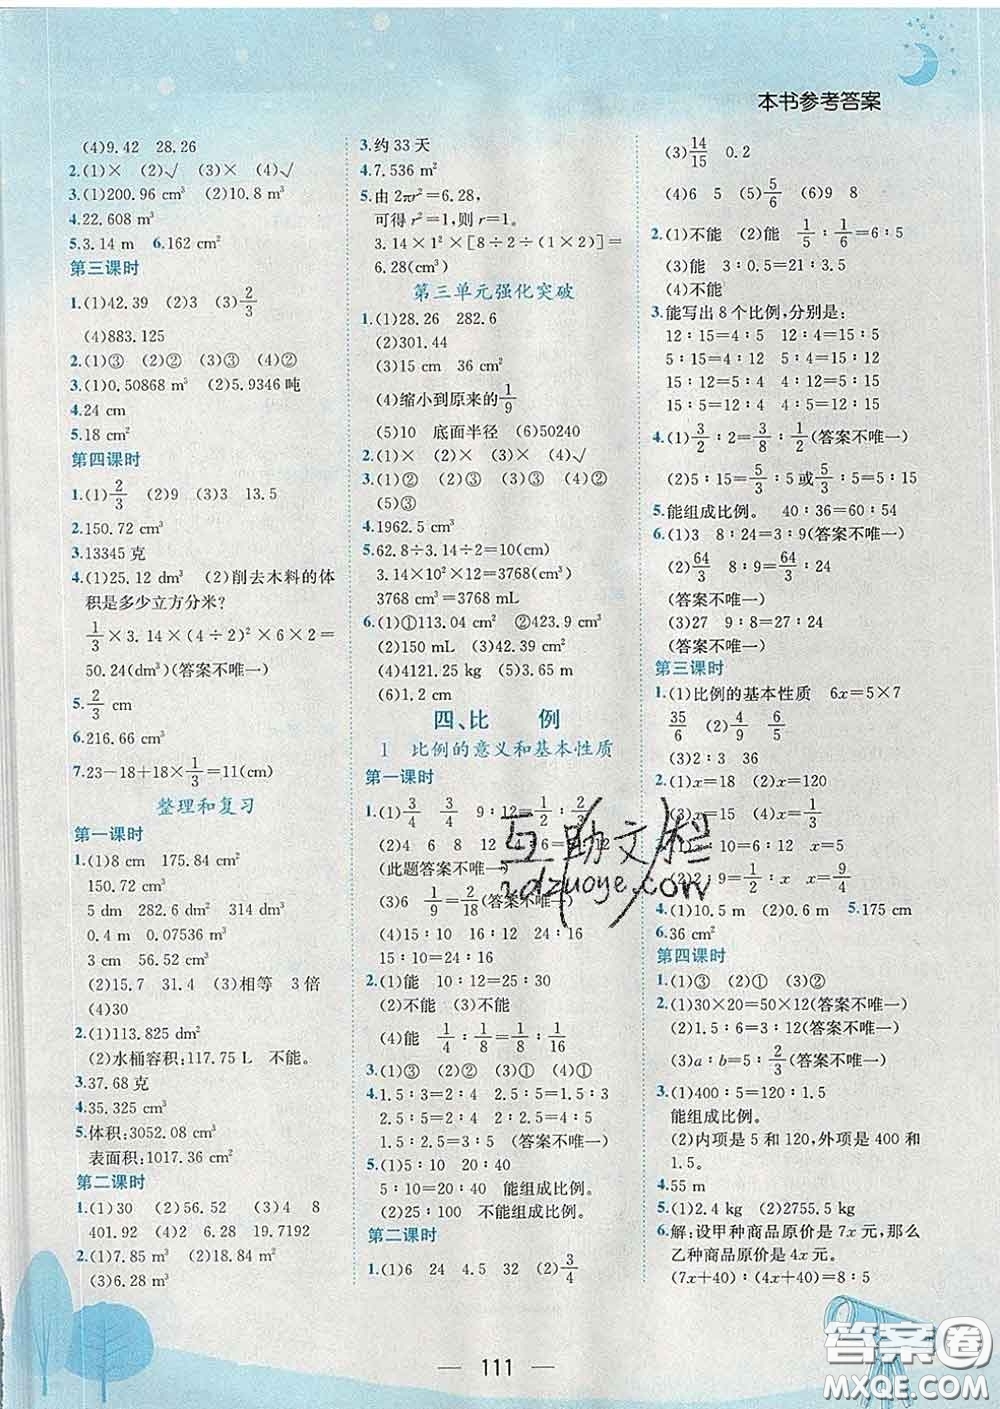 本书参考答案
(4)9.42 28.26
2.(1)× (2)√ (3)× (4)√
3.(1)200.96 cm³ (2)10.8 m³
4.22.608 m³
5.3.14 m 6.162 cm²
第三课时
1.(1)42.39 (2)3 (3)2/3
(4)883.125
2.(1)③ (2)② (3)③ (4)②
3.(1)0.50868 m³ (2)5.9346吨
4.24 cm
5.18 cm²
第四课时
1.(1)2/3 (2)9 (3)3 13.5
2.150.72 cm³
3.13345克
4.(1)25.12 dm³ (2)削去木料的体
积是多少立方分米?
1/3×3.14×(4÷2)²×6×2=
50.24(dm³)(答案不唯一)
5.2/3 cm
6.216.66 cm³
7.23-18+18×1/3=11(cm)
整理和复习
第一课时
1.(1)8 cm 175.84 cm²
150.72 cm³
5 dm 282.6 dm² 314 dm³
0.4 m 0.07536 m³
3 cm 56.52 cm³
(2)15.7 31.4 (3)相等 3倍
(4)30
2.(1)113.825 dm²
(2)水桶容积:117.75 L 不能。
3.37.68克
4.35.325 cm³
5.体积:3052.08 cm³
表面积:1017.36 cm²
第二课时
1.(1)30 (2)56.52 (3)4 8
401.92 (4)2 6.28 19.7192
2.(1)7.85 m³ (2)18.84 m²
(3)6.28 m³
3.约33天
4.7.536 m²
5.由2πr²=6.28,
可得r²=1,则r=1。
3.14×1²×[8÷2÷(1×2)]=
6.28(cm³)
第三单元强化突破
1.(1)28.26 282.6
(2)301.44
(3)15 cm 36 cm²
(4)缩小到原来的1/9
(5)10 底面半径 (6)50240
2.(1)× (2)× (3)× (4)√
3.(1)② (2)③ (3)③ (4)②
(5)③
4.1962.5 cm³
5.62.8÷3.14÷2=10(cm)
3.14×10²×12=3768(cm³)
3768 cm³=3768 mL
6.(1)①113.04 cm² ②423.9 cm³
(2)150 mL (3)42.39 cm³
(4)4121.25 kg (5)3.6 cm
(6)1.2 cm
四、比 例
1 比例的意义和基本性质
第一课时
1.(1)3/4 3/4 9:12=1/2:2/3
(2)4 6 8 12 4:6=8:12
(此题答案不唯一)
(3)6 1/9=2/18(答案不唯一)
(4)15:10 24:16
15:10=24:16
2.(1)能 10:12=25:30
(2)不能 (3)不能
(4)能 1/4:1/8=1/8:1/16
3.(1)③ (2)② (3)① (4)①
4.1.5:3=2:4 2:1.5=4:3
2.5:5=2:4 2.5:5=1.5:3
1.5:2.5=3:5 (答案不唯一)
5.(1)5:10 20:40
5:10=20:40 能组成比例。
(2)25:100 不能组成比例。
第二课时
1.(1)6 24 4.5 32 (2)3/4
(3)14/15 0.2
(4)6 5 (5)5/6 (6)9 8
2.(1)不能 (2)能 1/5:1/6=6:5
(3)能 3:0.5=21:3.5
(4)不能
3.能写出8个比例,分别是:
12:15=4:5 12:4=15:5
5:15=4:12 5:4=15:12
15:12=5:4 4:12=5:15
15:5=12:4 4:5=12:15
4.(1)3/2:2=3/8:1/2(答案不唯一)
(2)5:15=5/3:5或5/3:5=5:15
5.能组成比例。 40:36=60:54
6.(1)3 8:24=3:9(答案不唯一)
(2)64/3 8:9=64/3:24
(答案不唯一)
(3)27 9:8=27:24
(答案不唯一)
第三课时
1.(1)比例的基本性质 6x=5×7
35/6 (2)4/9 6/9
(3)2 3 36
2.(1)x=18 (2)x=120
(3)x=15 (4)x=1/3
(2)2:9=1/2:x x=9/4
4.(1)10.5 m (2)0.6 m 5.175 cm
6.36 cm²
第四课时
1.(1)③ (2)① (3)②
2.(1)30×20=50×12(答案不唯一)
(2)1.5:6=3:12(答案不唯一)
(3)a:b=5:2/3(答案不唯一)
3.(1)400:5=120:1.5
能组成比例。
(2)内项是5和120,外项是400和
1.5。
4.55 m
5.(1)2.4 kg (2)2755.5 kg
6.解:设甲种商品原价是7x元,那么
乙种商品原价是4x元。
(7x+40):(4x+40)=8:5
111
互助文档
hdzuoye.com
答案圈
MXQE.COM